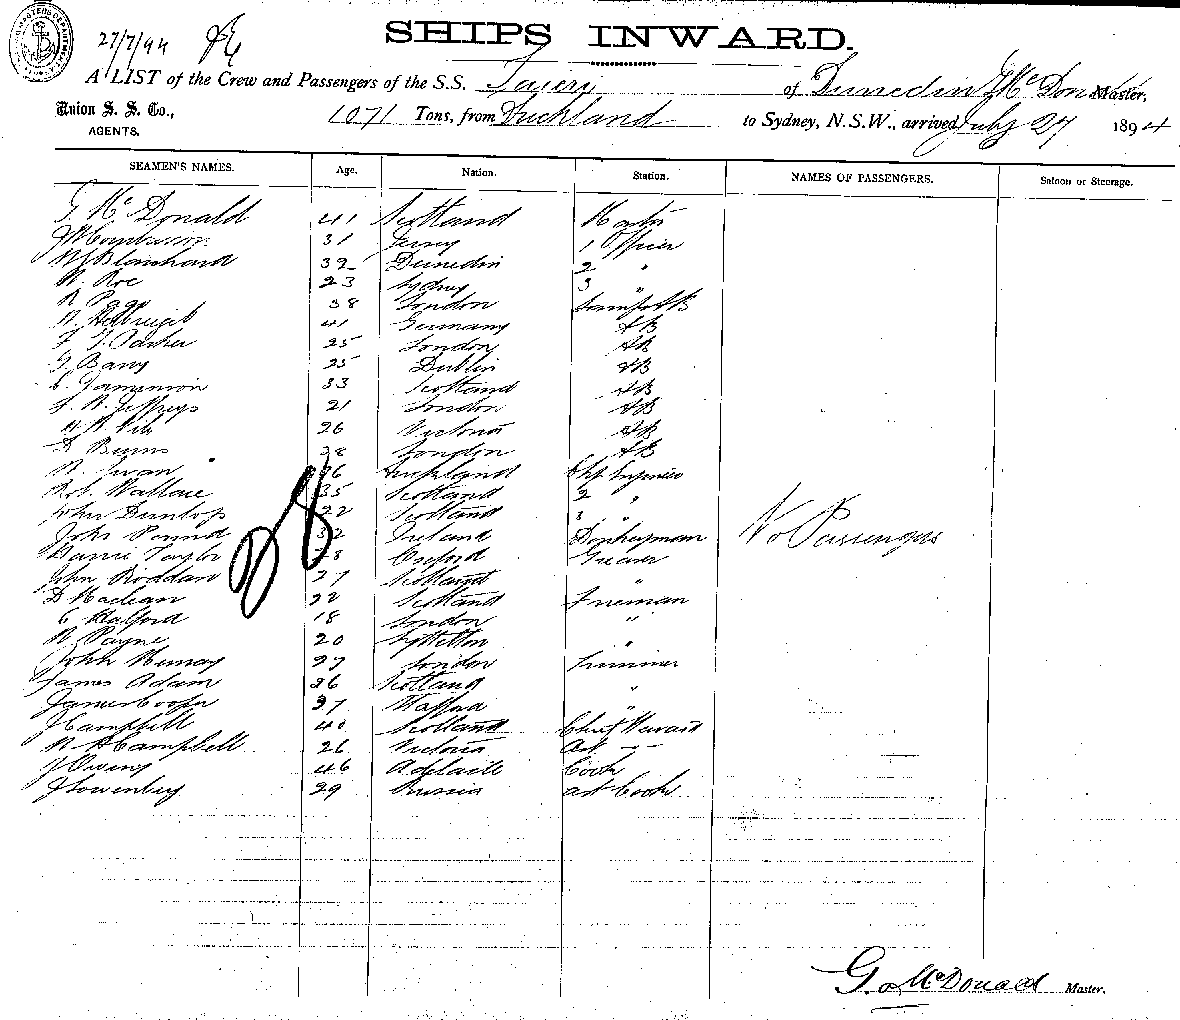 27/7/94
SHIPS INWARD.
A LIST of the Crew and Passengers of the S.S. Taieri of Dunedin G McDonald Master,
Union S. S. Co., AGENTS.
1071 Tons, from Auckland to Sydney, N.S.W., arrived July 27 1894
SEAMEN'S NAMES. Age. Nation. Station. NAMES OF PASSENGERS. Saloon or Steerage.
G McDonald 41 Scotland Master
31 Jersey 1 Officer
W J Blanchard 32 Dunedin 2 "
W. Roe 23 Sydney 3 "
R Page 38 London
41 Germany AB
25 London AB
G Barry 25 Dublin AB
33 Scotland AB
Jeffreys 21 London AB
26 Victoria AB
D Burns 38 London AB
26 Auckland
Robt. Wallace 35 Scotland 2 "
John Dunlop 22 Scotland 3 "
John Pound 32 Ireland Donkeyman
Taylor Oxford Greaser
No Passengers
John Roddan 27 Scotland
D Maclean 22 Scotland Fireman
C Halford 18 London "
W. Payne 20 Lyttelton "
John Murray 27 London Trimmer
James Adam 26 Scotland "
James Cooper
J Campbell 40 Scotland Chief Steward
Campbell 26 Victoria
J Owens 46 Adelaide Cook
29 Russia Cook
G. McDonald Master.